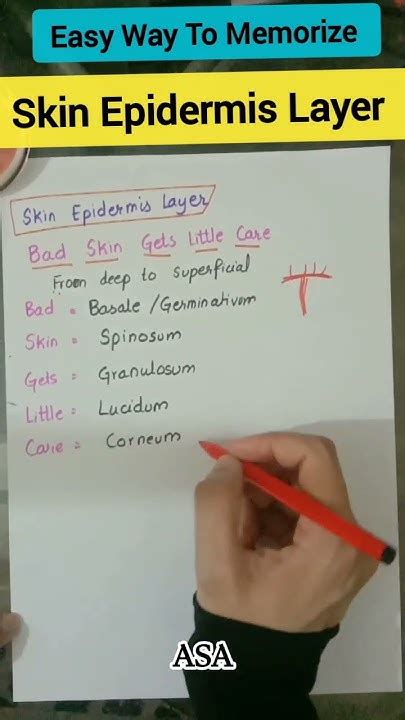 Easy Way To Memorize
Skin Epidermis Layer
Skin Epidermis Layer
Bad Skin Gets Little Care
From deep to superficial
Bad = Basale / Germinativum
Skin = Spinosum
Gets = Granulosum
Little = Lucidum
Care = Corneum
ASA